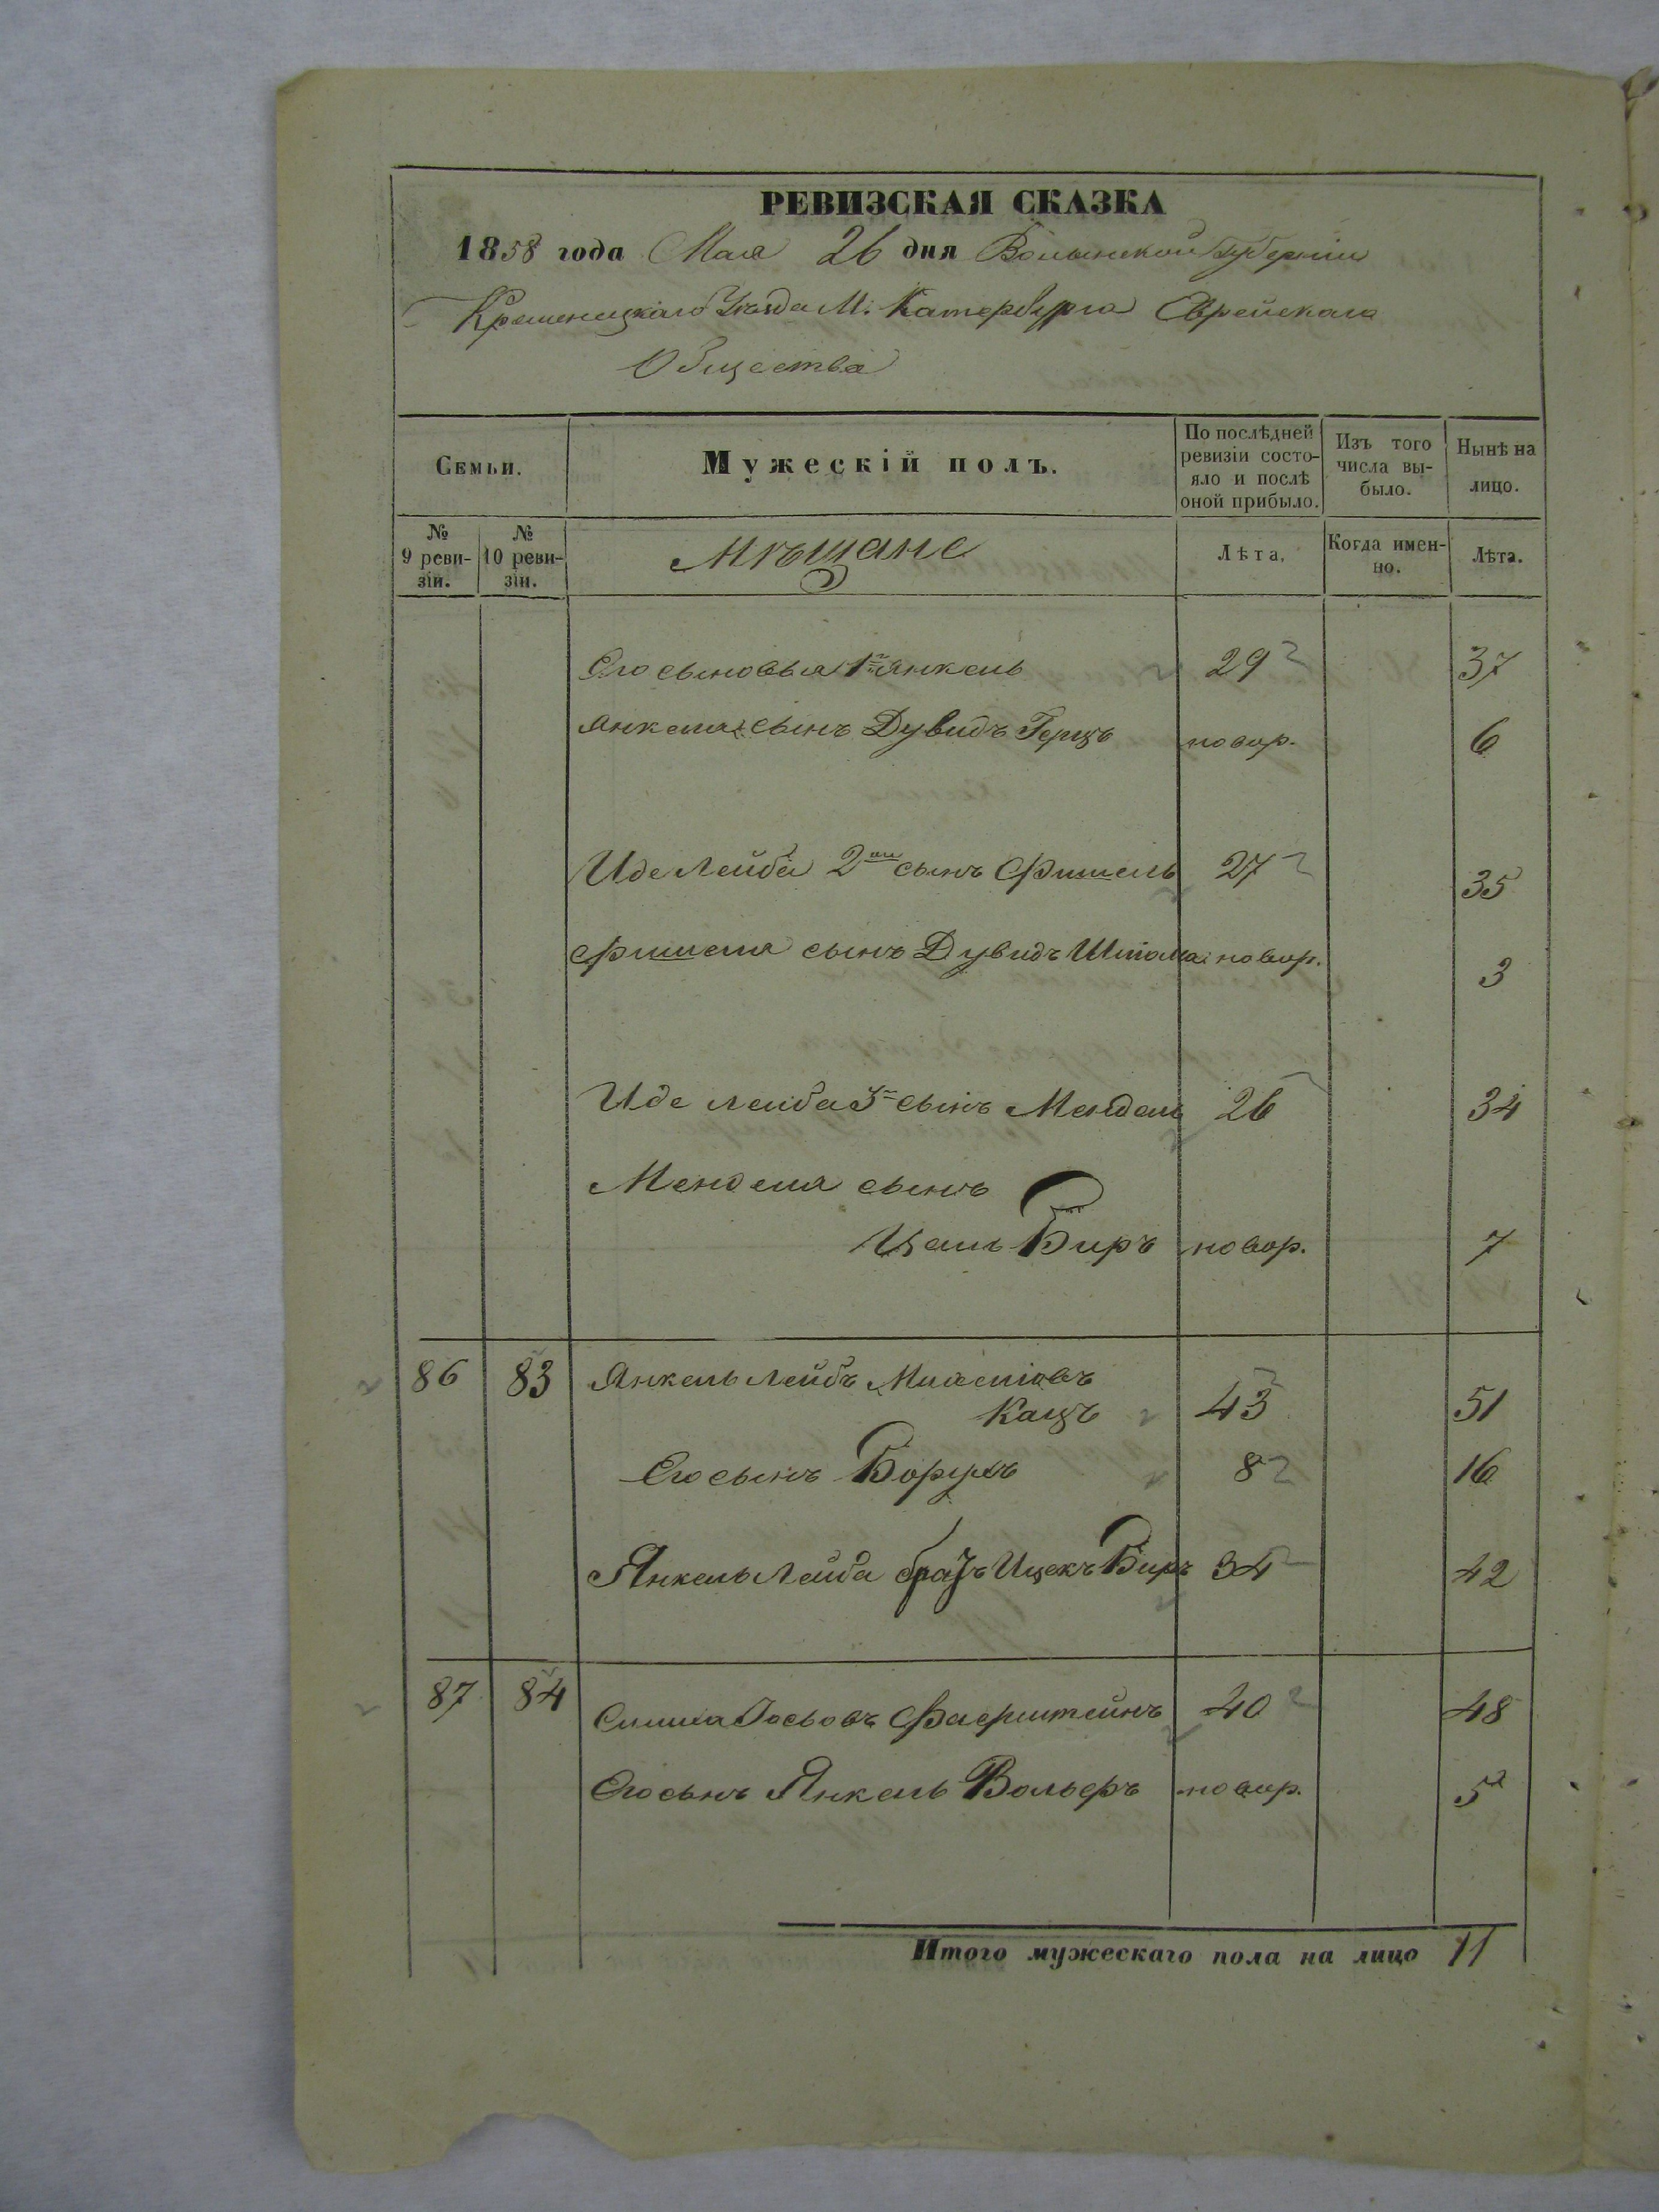 РЕВИЗСКАЯ СКАЗКА
1858 года Мая 26 дня Волынской Губерніи
Кременецкаго Уѣзда М. Катербурга Еврейскаго
Общества
Семьи.
Мужескій полъ.
По послѣдней ревизіи состояло и послѣ оной прибыло.
Изъ того числа выбыло.
Нынѣ на лицо.
№ 9 ревизіи.
№ 10 ревизіи.
Мѣщане
Лѣта.
Когда именно.
Лѣта.
Его сыновья 1й Янкель 29 37
Янкеля сынъ Дувидъ Герцъ новор. 6
Иде Лейба 2й сынъ Фишель 27 35
Фишеля сынъ Дувидъ новор. 3
Иде Лейба 3й сынъ Мендель 26 34
Менделя сынъ
Цаль Биръ новор. 7
86 83 Янкель Лейбъ
Кацъ 43 51
Его сынъ Борухъ 8 16
Янкель Лейба братъ Ицекъ Биръ 34 42
87 84 Симха Іосьовъ Фаерштейнъ 40 48
Его сынъ Янкель Вольеръ новор. 5
Итого мужескаго пола на лицо 11